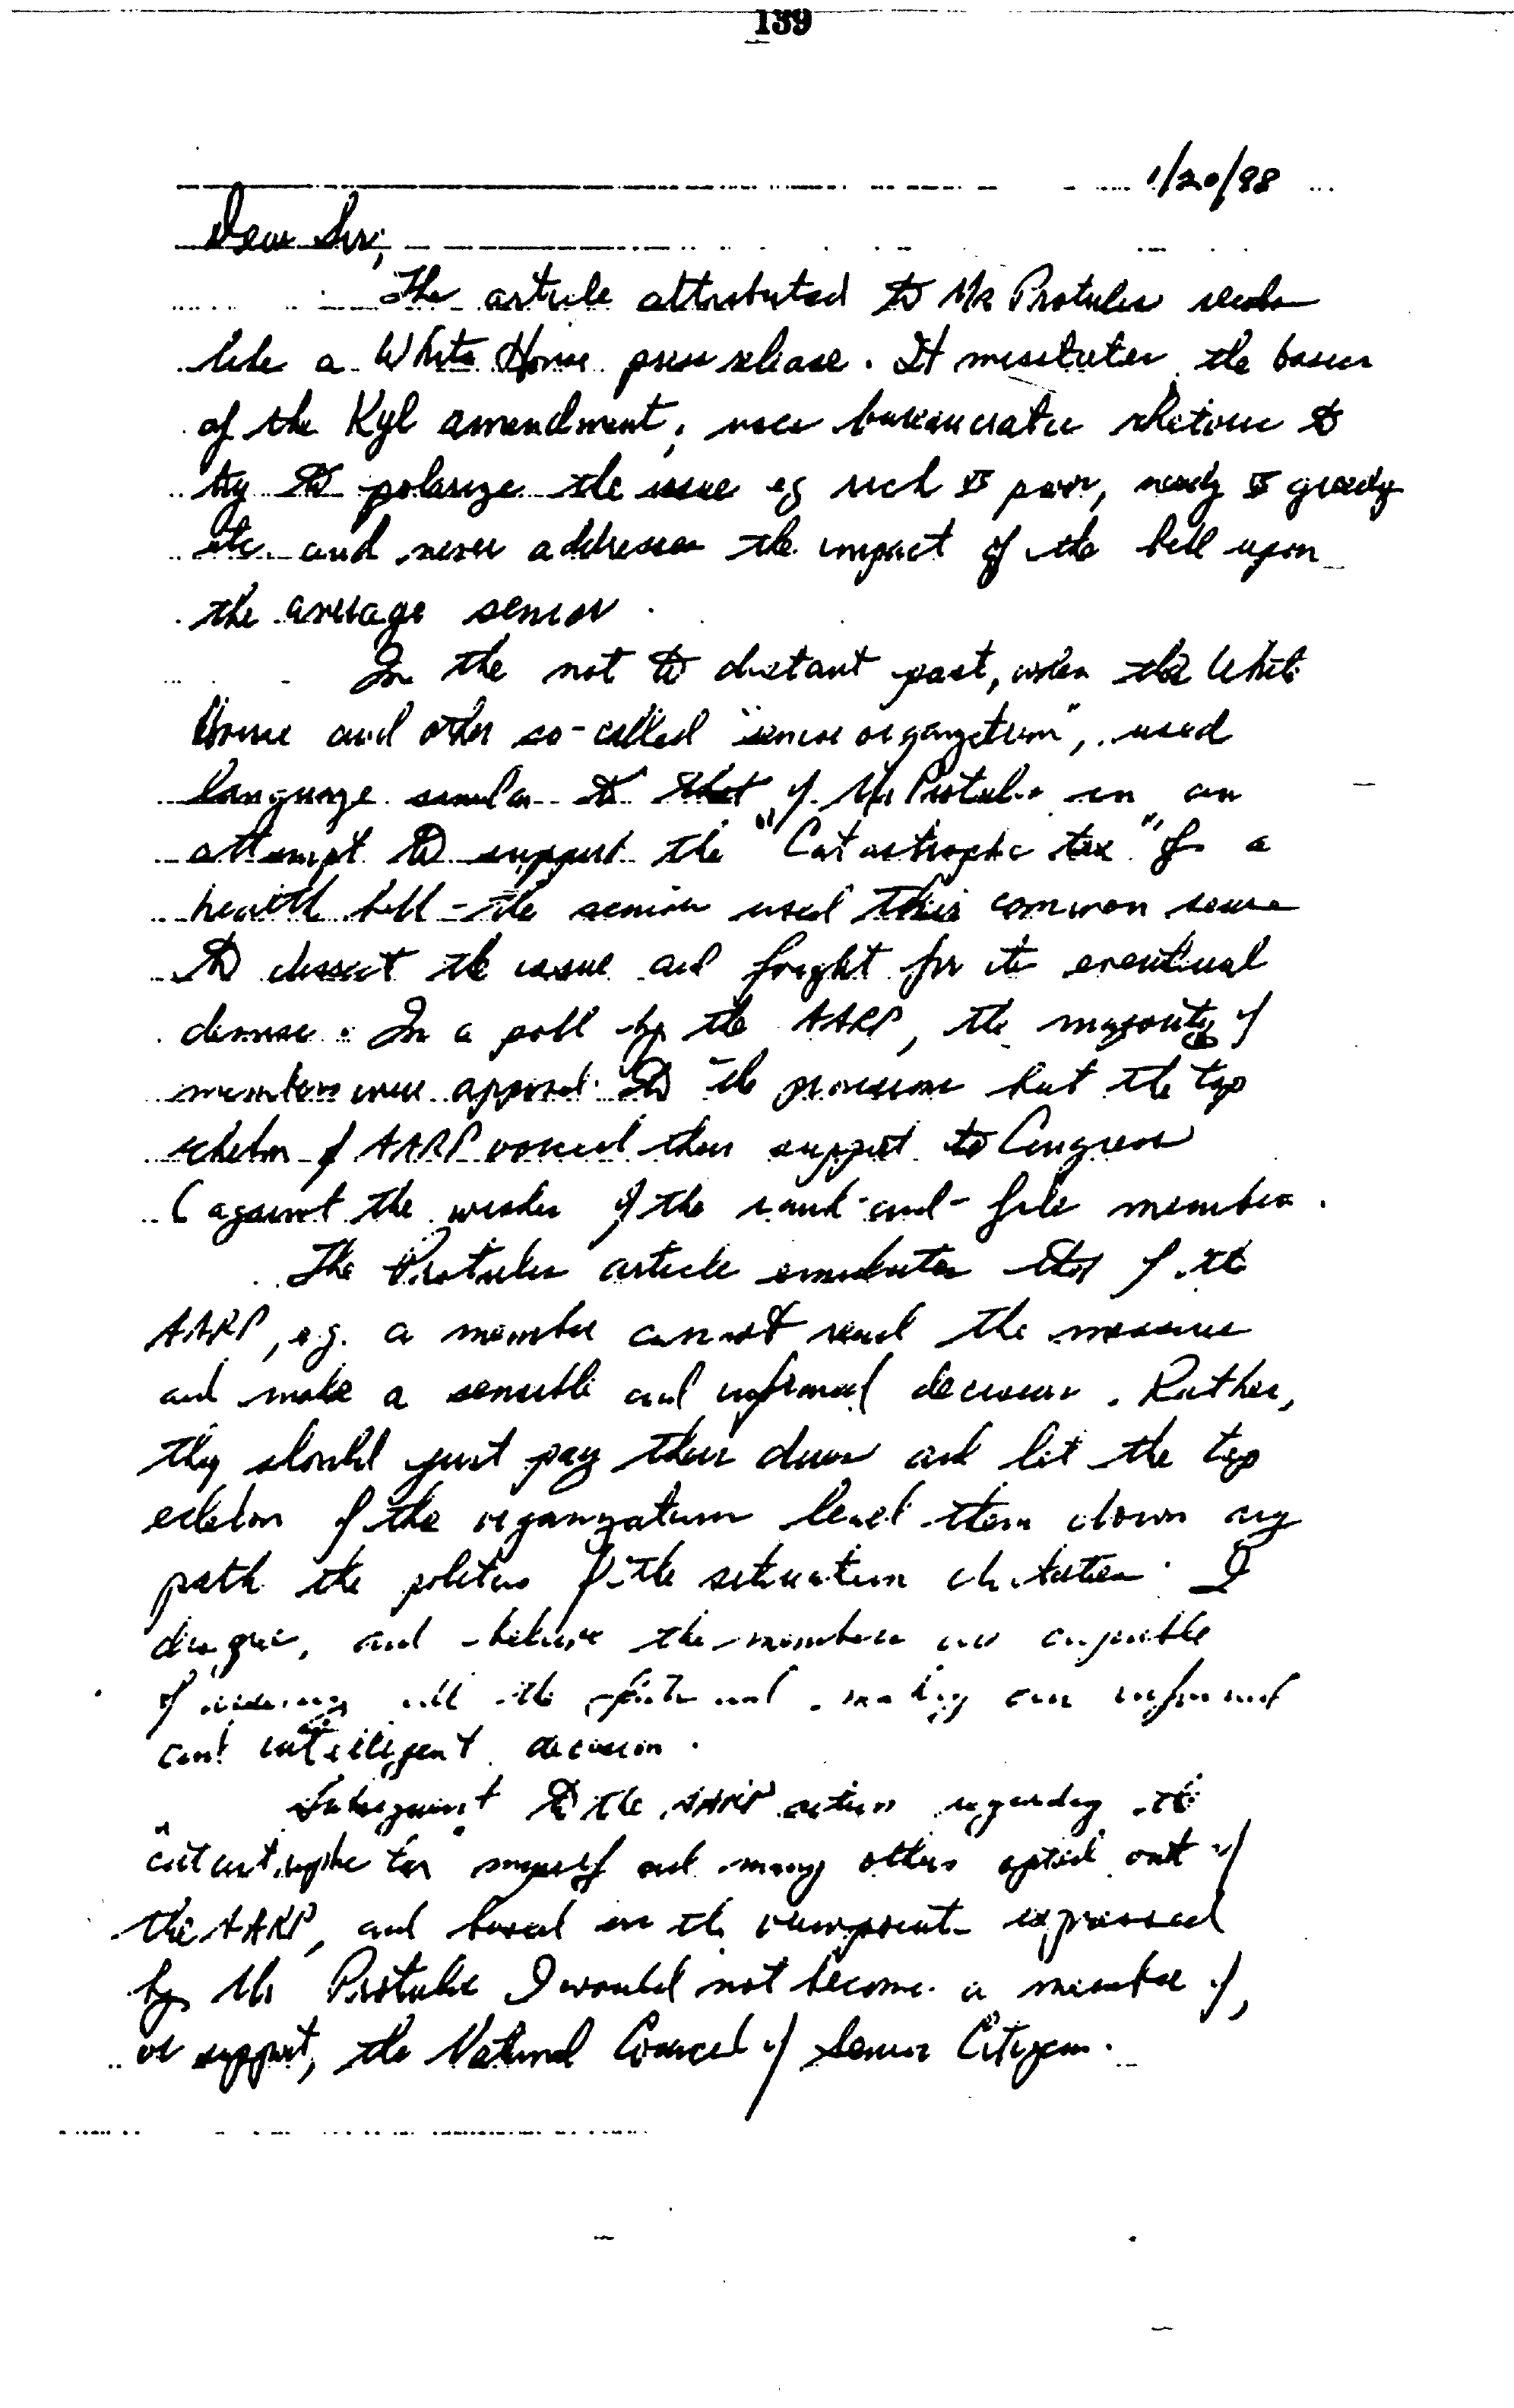 139
1/20/98
Dear Sir,
The article attributed to Mr Protulis reads
like a White House press release. It misstates the basis
of the Kyl amendment, uses bureaucratic rhetoric to
try to polarize the issue eg rich vs poor, needy vs greedy
etc. and never addresses the impact of the bill upon
the average senior.
In the not to distant past, when the White
House and other so-called "senior organization", used
language similar to that of Mr Protulis in an
attempt to support the "Catastrophic tax" of a
health bill - the seniors used their common sense
to dissect the issue and fought for its eventual
demise. In a poll by the AARP, the majority of
members were opposed to the provisions but the top
echelon of AARP voiced their support to Congress
(against the wishes of the rank-and-file members.
The Protulis article emulates that of the
AARP, e.g. a member cannot read the measure
and make a sensible and informed decision. Rather,
they should just pay their dues and let the top
echelon of the organization lead them down any
path the politics of the situation dictates. I
disagree, and believe the members are capable
of all the and making an informed
and intelligent decision.
Subsequent to the AARP action regarding the
"catastrophic tax myself and many others opted out of
the AARP, and based on the viewpoint expressed
by Mr Protulis I would not become a member of,
or support, the National Council of Senior Citizens.